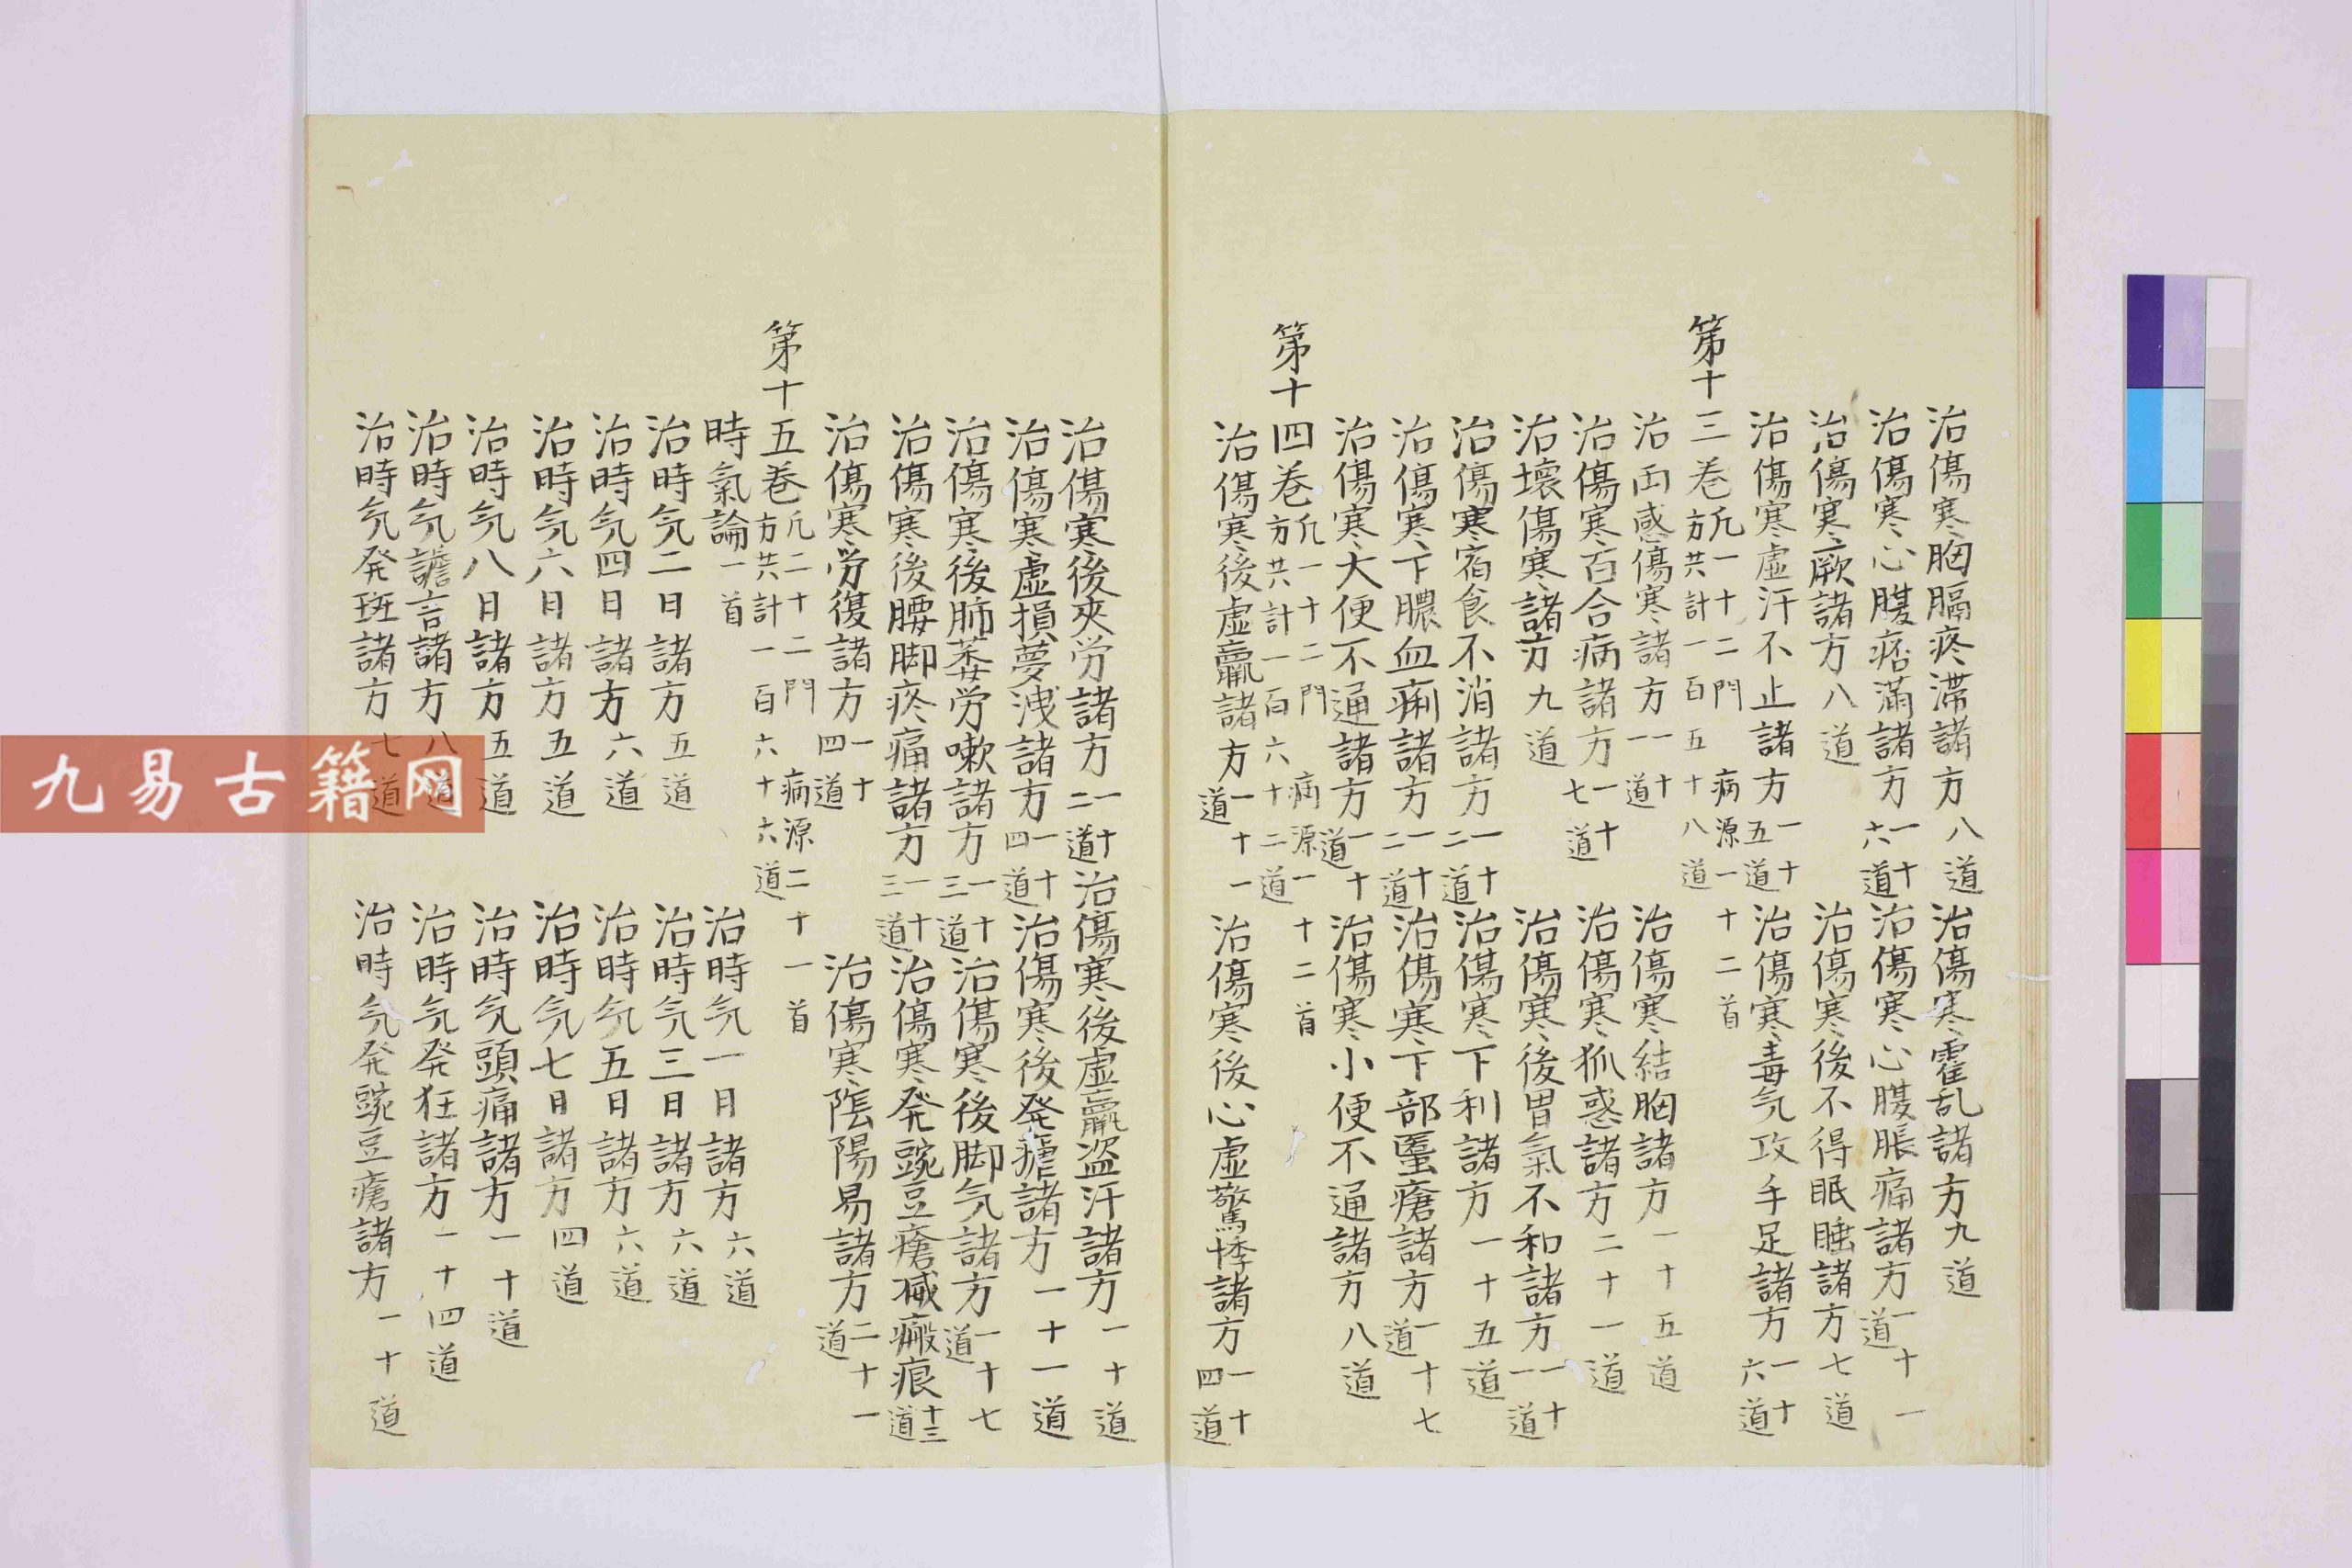 治傷寒胸膈疼滞諸方八道 治傷寒霍乱諸方九道
治傷寒心腹痞滿諸方一十六道 治傷寒心腹脹痛諸方一十一道
治傷寒厥諸方八道 治傷寒後不得眠睡諸方七道
治傷寒虛汗不止諸方一十五道 治傷寒毒気攻手足諸方一十六道
第十三卷 凡一十二門 病源一十二首 方共計一百五十八道
治両感傷寒諸方一十一道 治傷寒結胸諸方一十五道
治傷寒百合病諸方一十七道 治傷寒狐惑諸方二十一道
治壞傷寒諸方九道 治傷寒後胃氣不和諸方一十一道
治傷寒宿食不消諸方一十二道 治傷寒下利諸方一十五道
治傷寒下膿血痢諸方一十二道 治傷寒下部䘌瘡諸方一十七道
治傷寒大便不通諸方一十一道 治傷寒小便不通諸方八道
第十四卷 凡一十二門 病源一十二首 方共計一百六十二道
治傷寒後虛羸諸方一十一道 治傷寒後心虛驚悸諸方一十四道
治傷寒後夾労諸方一十二道 治傷寒後虛羸盜汗諸方一十道
治傷寒虛損夢洩諸方一十四道 治傷寒後発瘧諸方一十一道
治傷寒後肺萎労嗽諸方一十三道 治傷寒後脚気諸方一十七道
治傷寒後腰脚疼痛諸方一十三道 治傷寒発豌豆瘡滅瘢痕十三道
治傷寒労復諸方一十四道 治傷寒陰陽易諸方二十一道
第十五卷 凡二十二門 病源二十一首 方共計一百六十六道
時氣論一首 治時気一日諸方六道
治時気二日諸方五道 治時気三日諸方六道
治時気四日諸方六道 治時気五日諸方六道
治時気六日諸方五道 治時気七日諸方四道
治時気八日諸方五道 治時気頭痛諸方一十道
治時気譫言諸方八道 治時気発狂諸方一十四道
治時気発斑諸方七道 治時気発豌豆瘡諸方一十道
九易古籍网